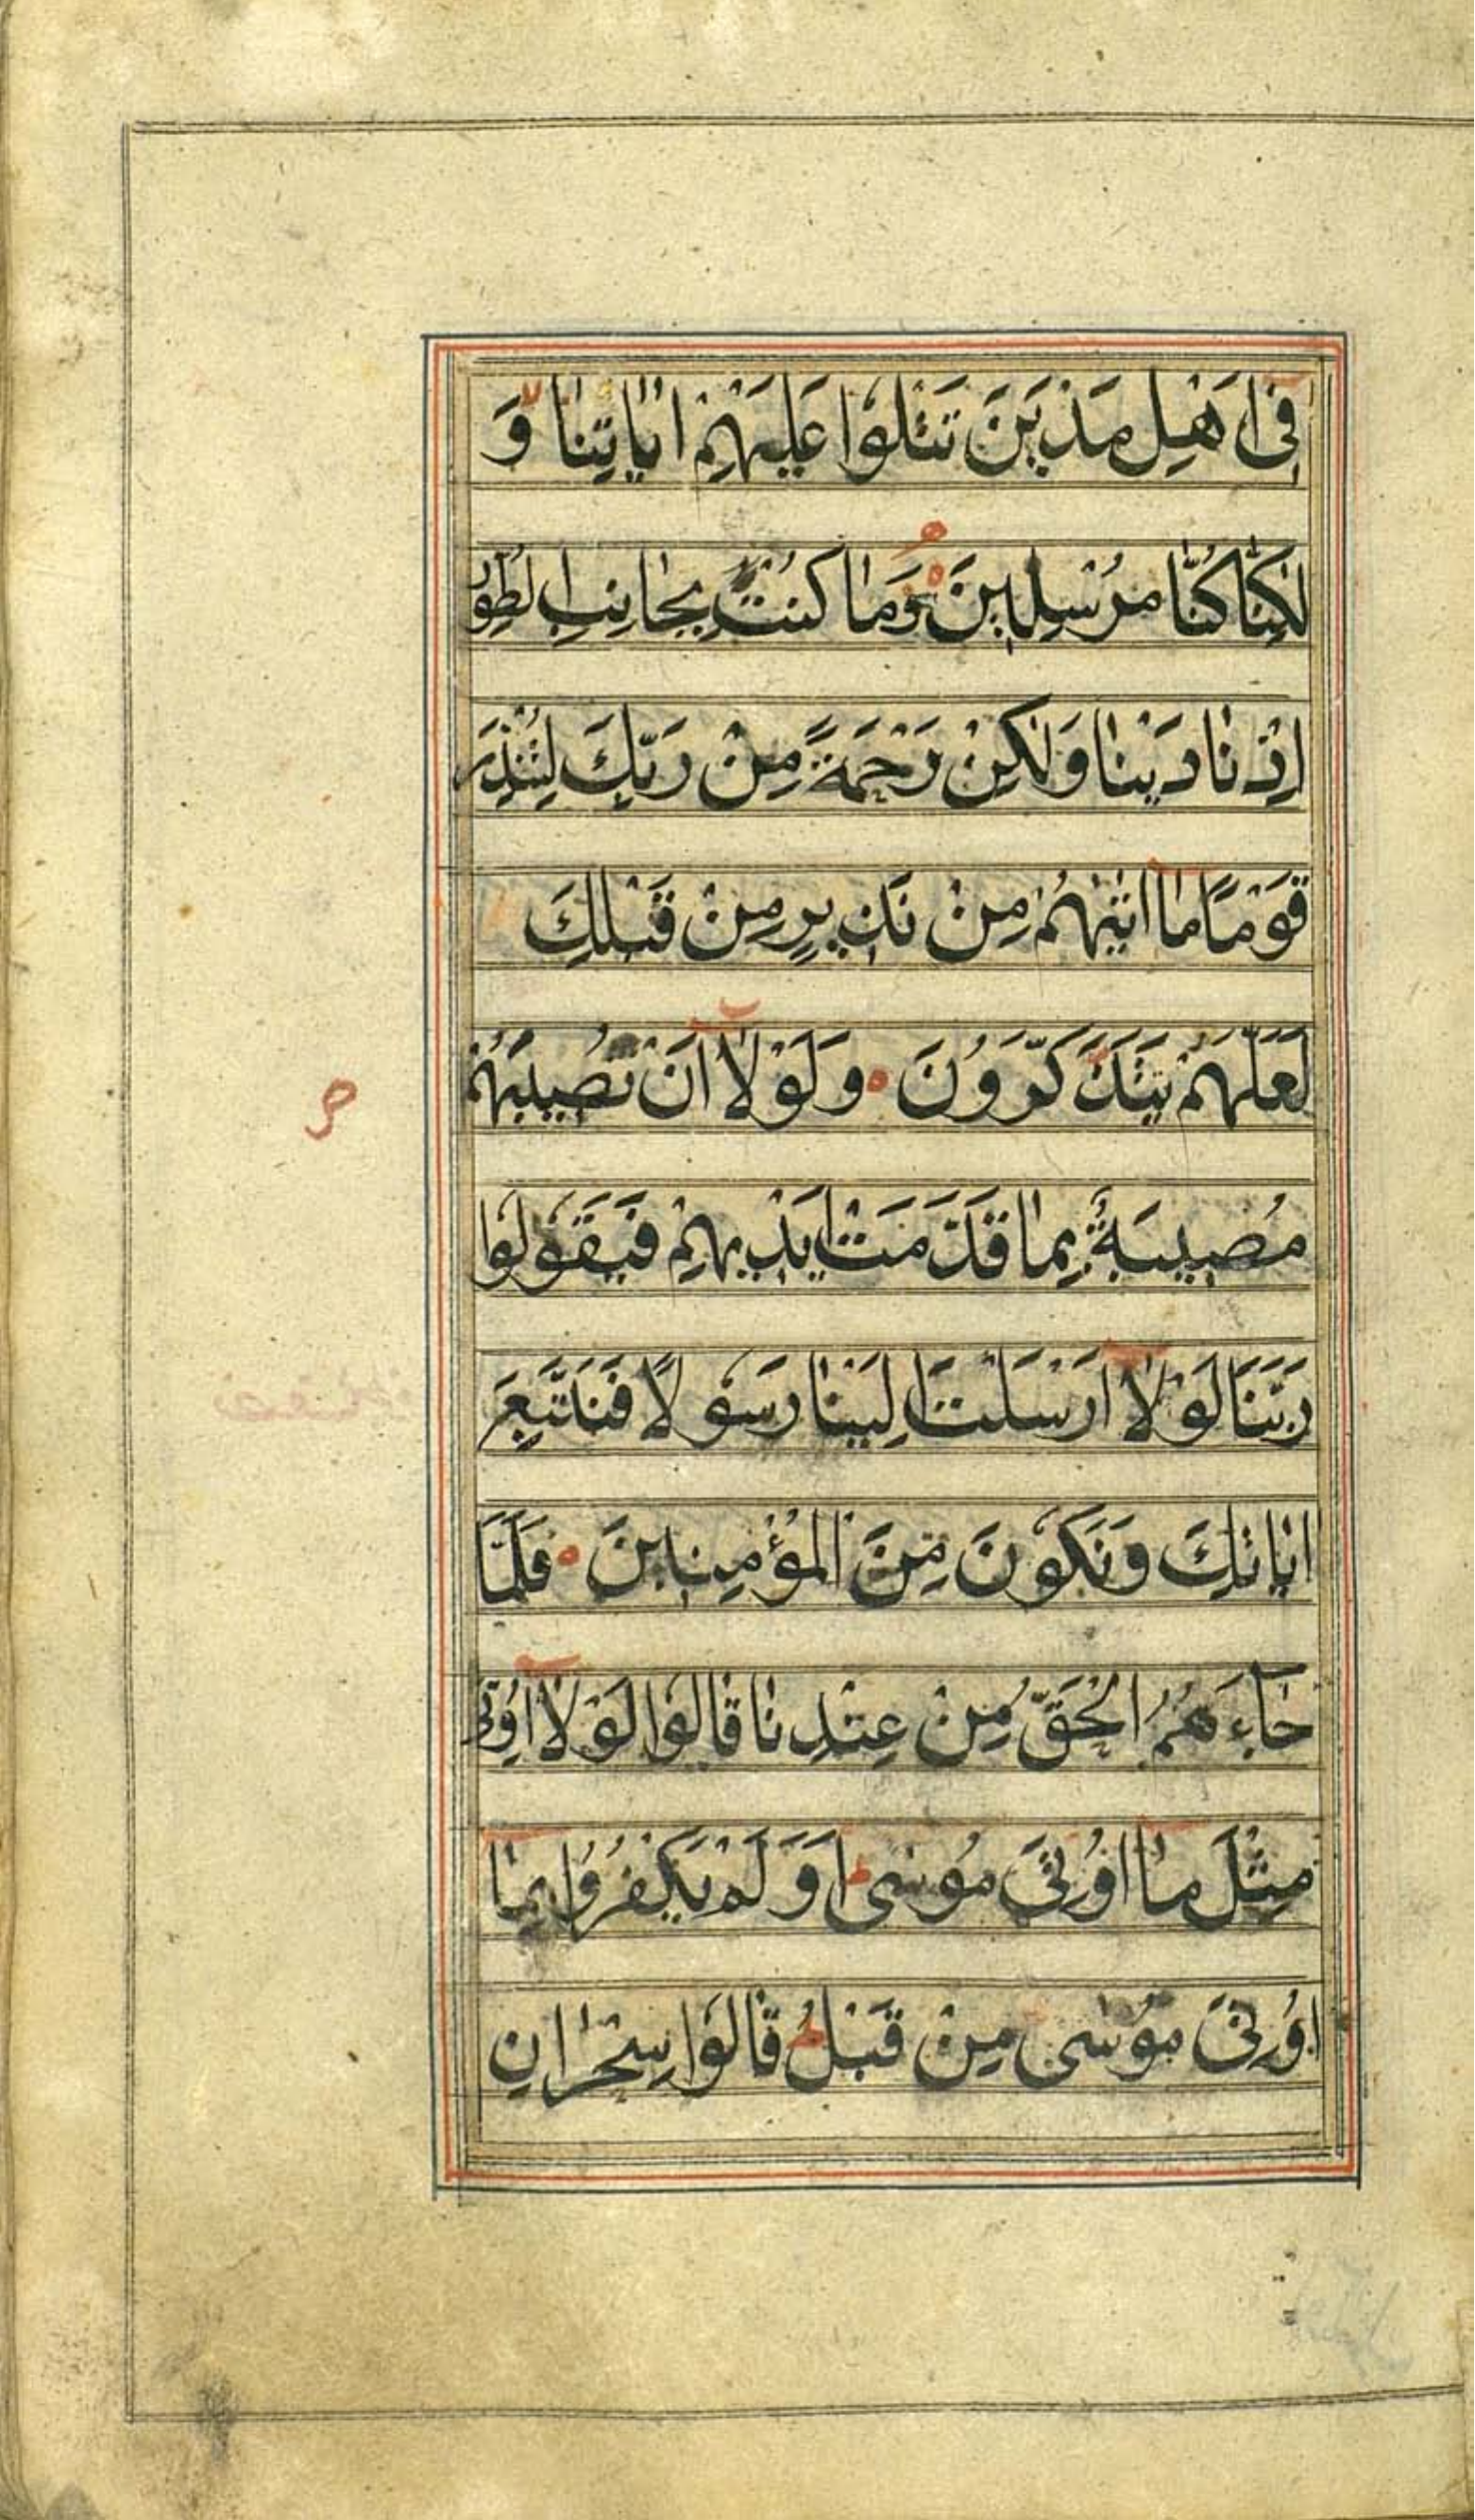 فِى اَهْلِ مَدْيَنَ تَتْلُوْا عَلَيْهِمْ اٰيَاتِنَا وَ
لٰكِنَّا كُنَّا مُرْسِلِيْنَ وَمَا كُنْتَ بِجَانِبِ الطُّوْرِ
اِذْ نَادَيْنَا وَلٰكِنْ رَحْمَةً مِنْ رَبِّكَ لِتُنْذِرَ
قَوْمًا مَا اَتٰيهُمْ مِنْ نَذِيرٍ مِنْ قَبْلِكَ
لَعَلَّهُمْ يَتَذَكَّرُوْنَ وَلَوْلَا اَنْ تُصِيبَهُمْ
مُصِيبَةٌ بِمَا قَدَّمَتْ اَيْدِيهِمْ فَيَقُوْلُوْا
رَبَّنَا لَوْلَا اَرْسَلْتَ اِلَيْنَا رَسُوْلًا فَنَتَّبِعَ
اٰيَاتِكَ وَنَكُوْنَ مِنَ الْمُؤْمِنِيْنَ فَلَمَّا
جَاۤءَهُمُ الْحَقُّ مِنْ عِنْدِنَا قَالُوْا لَوْلَا اُوْتِىَ
مِثْلَ مَا اُوْتِىَ مُوْسٰى اَوَلَمْ يَكْفُرُوْا بِمَا
اُوْتِىَ مُوْسٰى مِنْ قَبْلُ قَالُوْا سِحْرَانِ